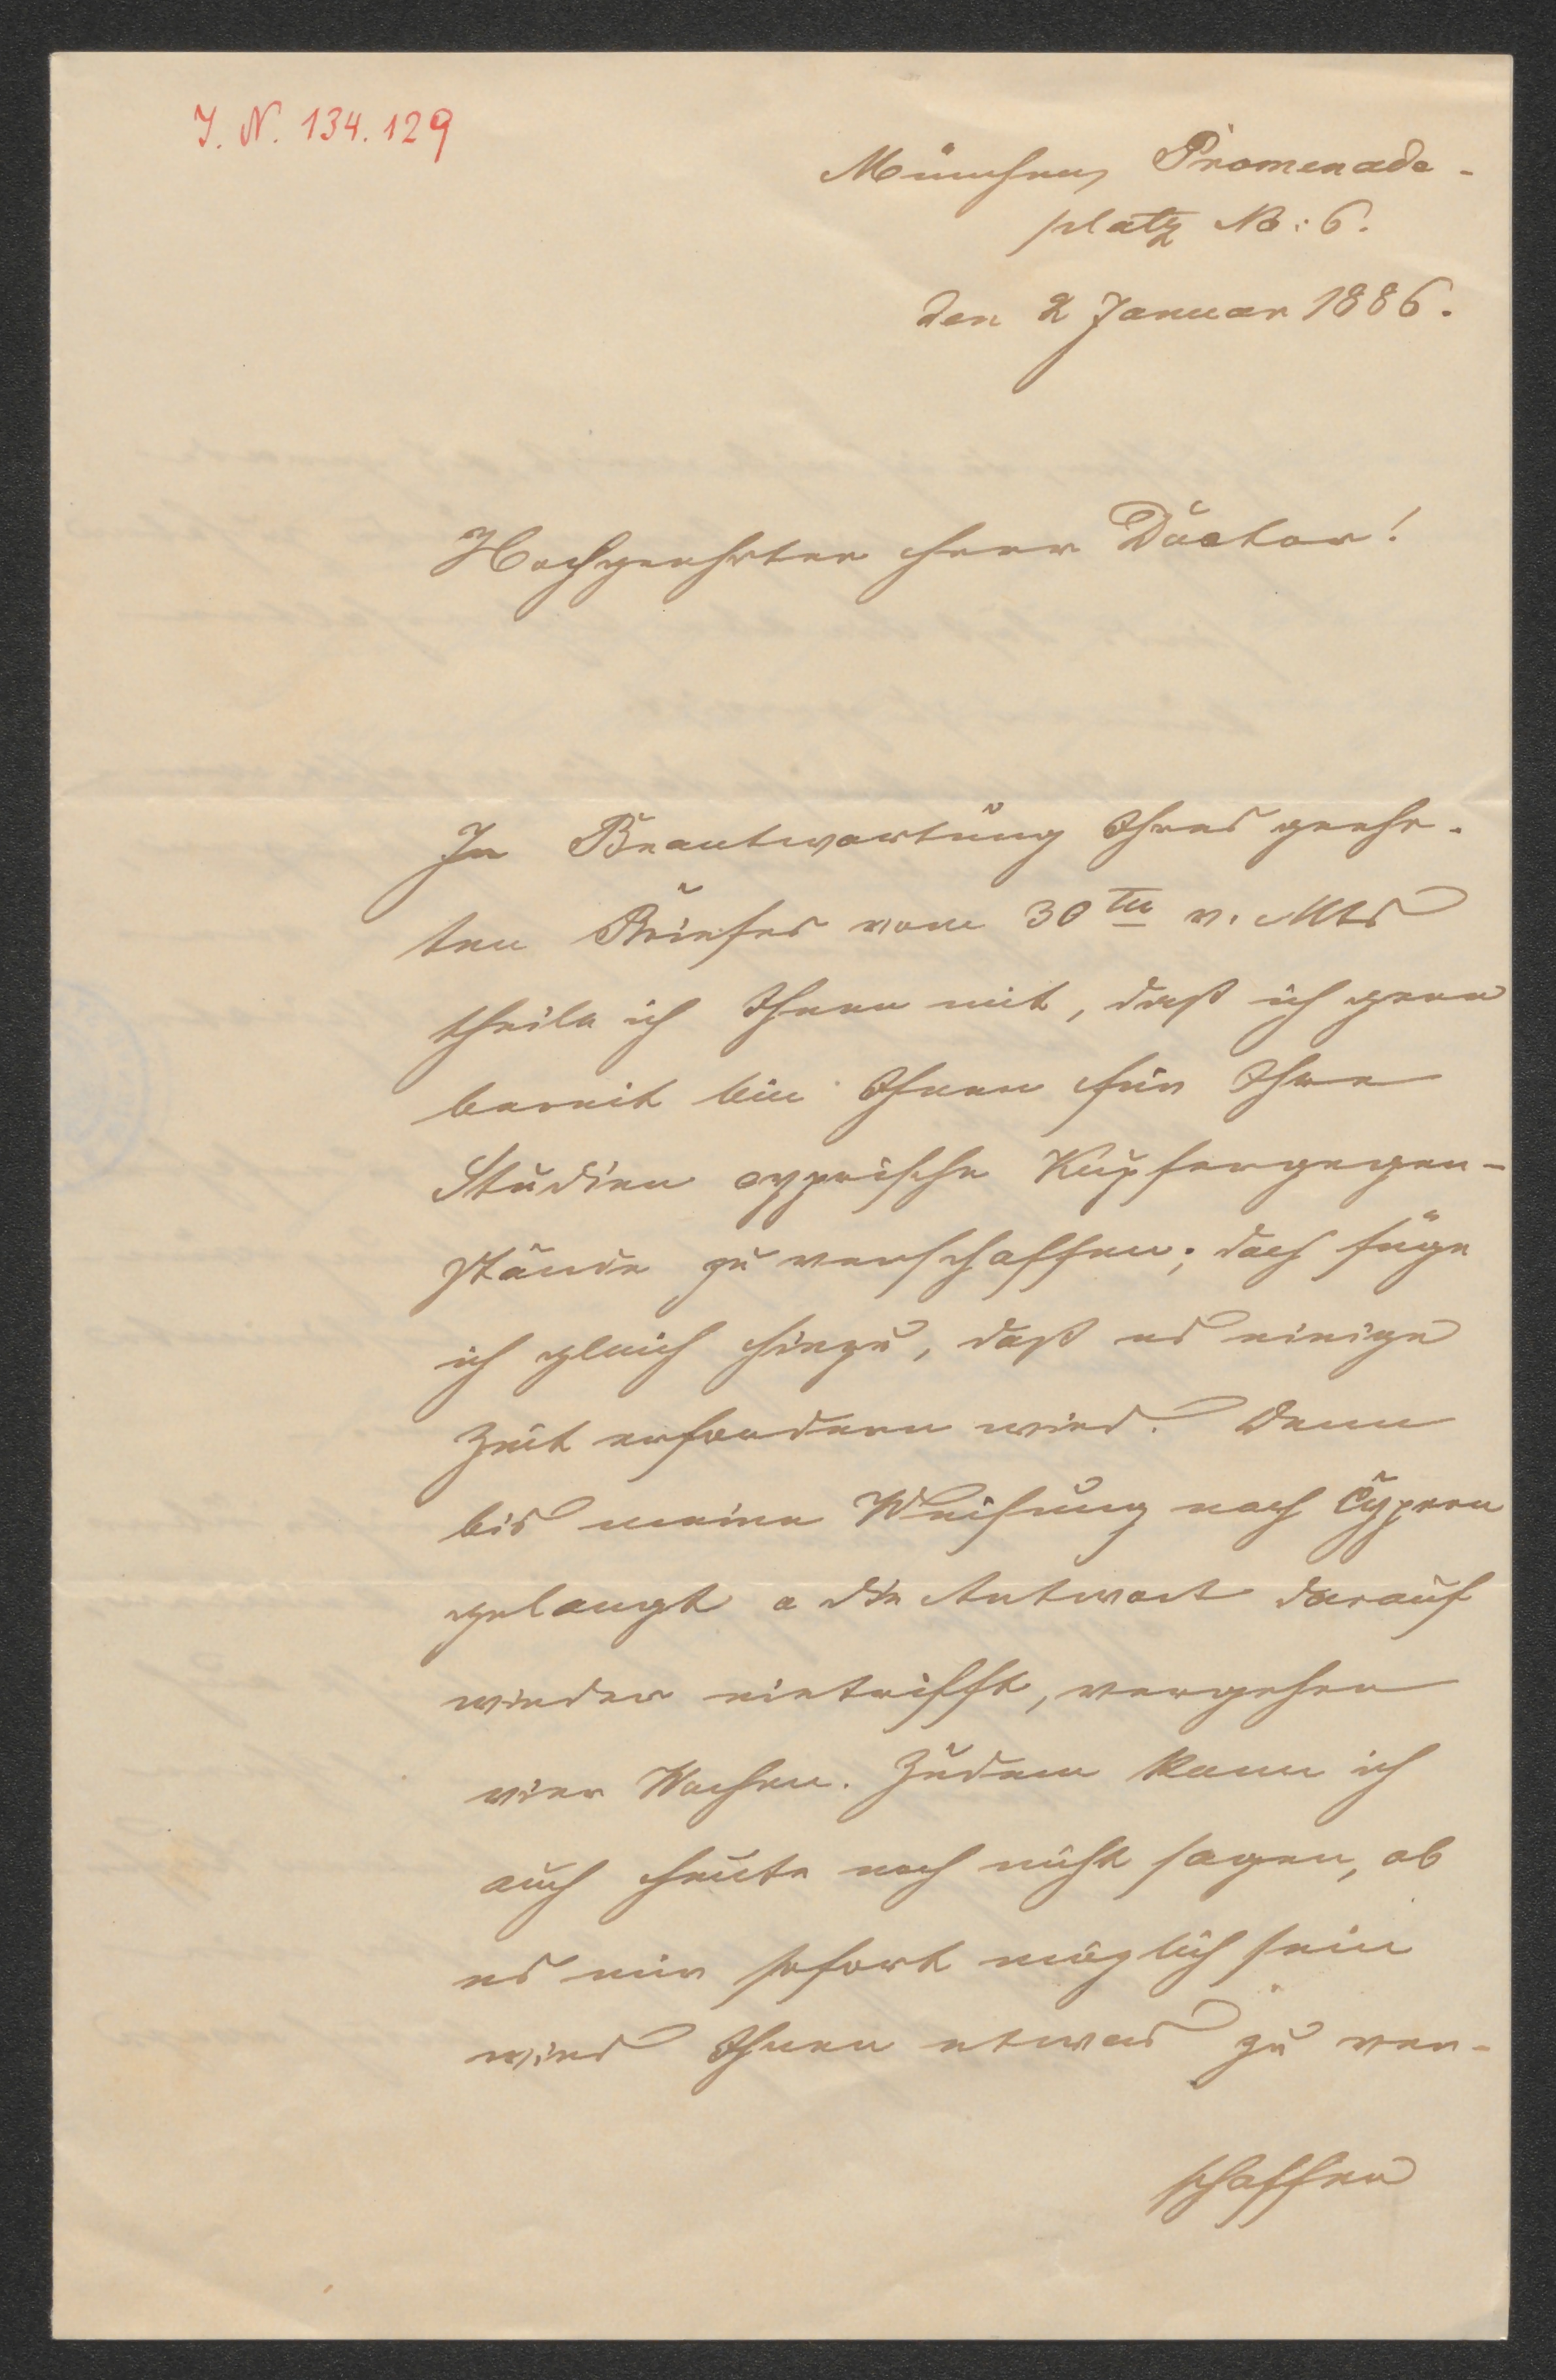 I. N. 134.129
München, Promenade-
platz No: 6.
den 2 Januar 1886.
Hochgeehrter Herr Doctor!
In Beantwortung Ihres geehr-
ten Briefes vom 30ten v. Mts
theile ich Ihnen mit, daß ich gern
bereit bin Ihnen für Ihre
Studien cyprische Kupfergegen-
stände zu verschaffen; doch füge
ich gleich hinzu, daß es einige
Zeit erfordern wird. Denn
bis meine Weisung nach Cypern
gelangt u die Antwort darauf
wieder eintrifft, vergehen
vier Wochen. Zudem kann ich
auch heute noch nicht sagen, ob
es mir sofort möglich sein
wird Ihnen etwas zu ver-
schaffen